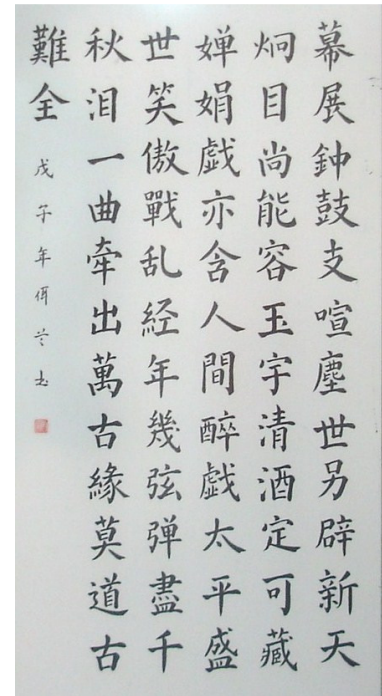 幕展鈡鼓支喧塵世另辟新天
炯目尚能容玉宇清酒定可藏
婵娟戯亦含人間醉戯太平盛
世笑傲戰乱経年幾弦弹盡千
秋泪一曲牽出萬古緣莫道古
難全
戊子年